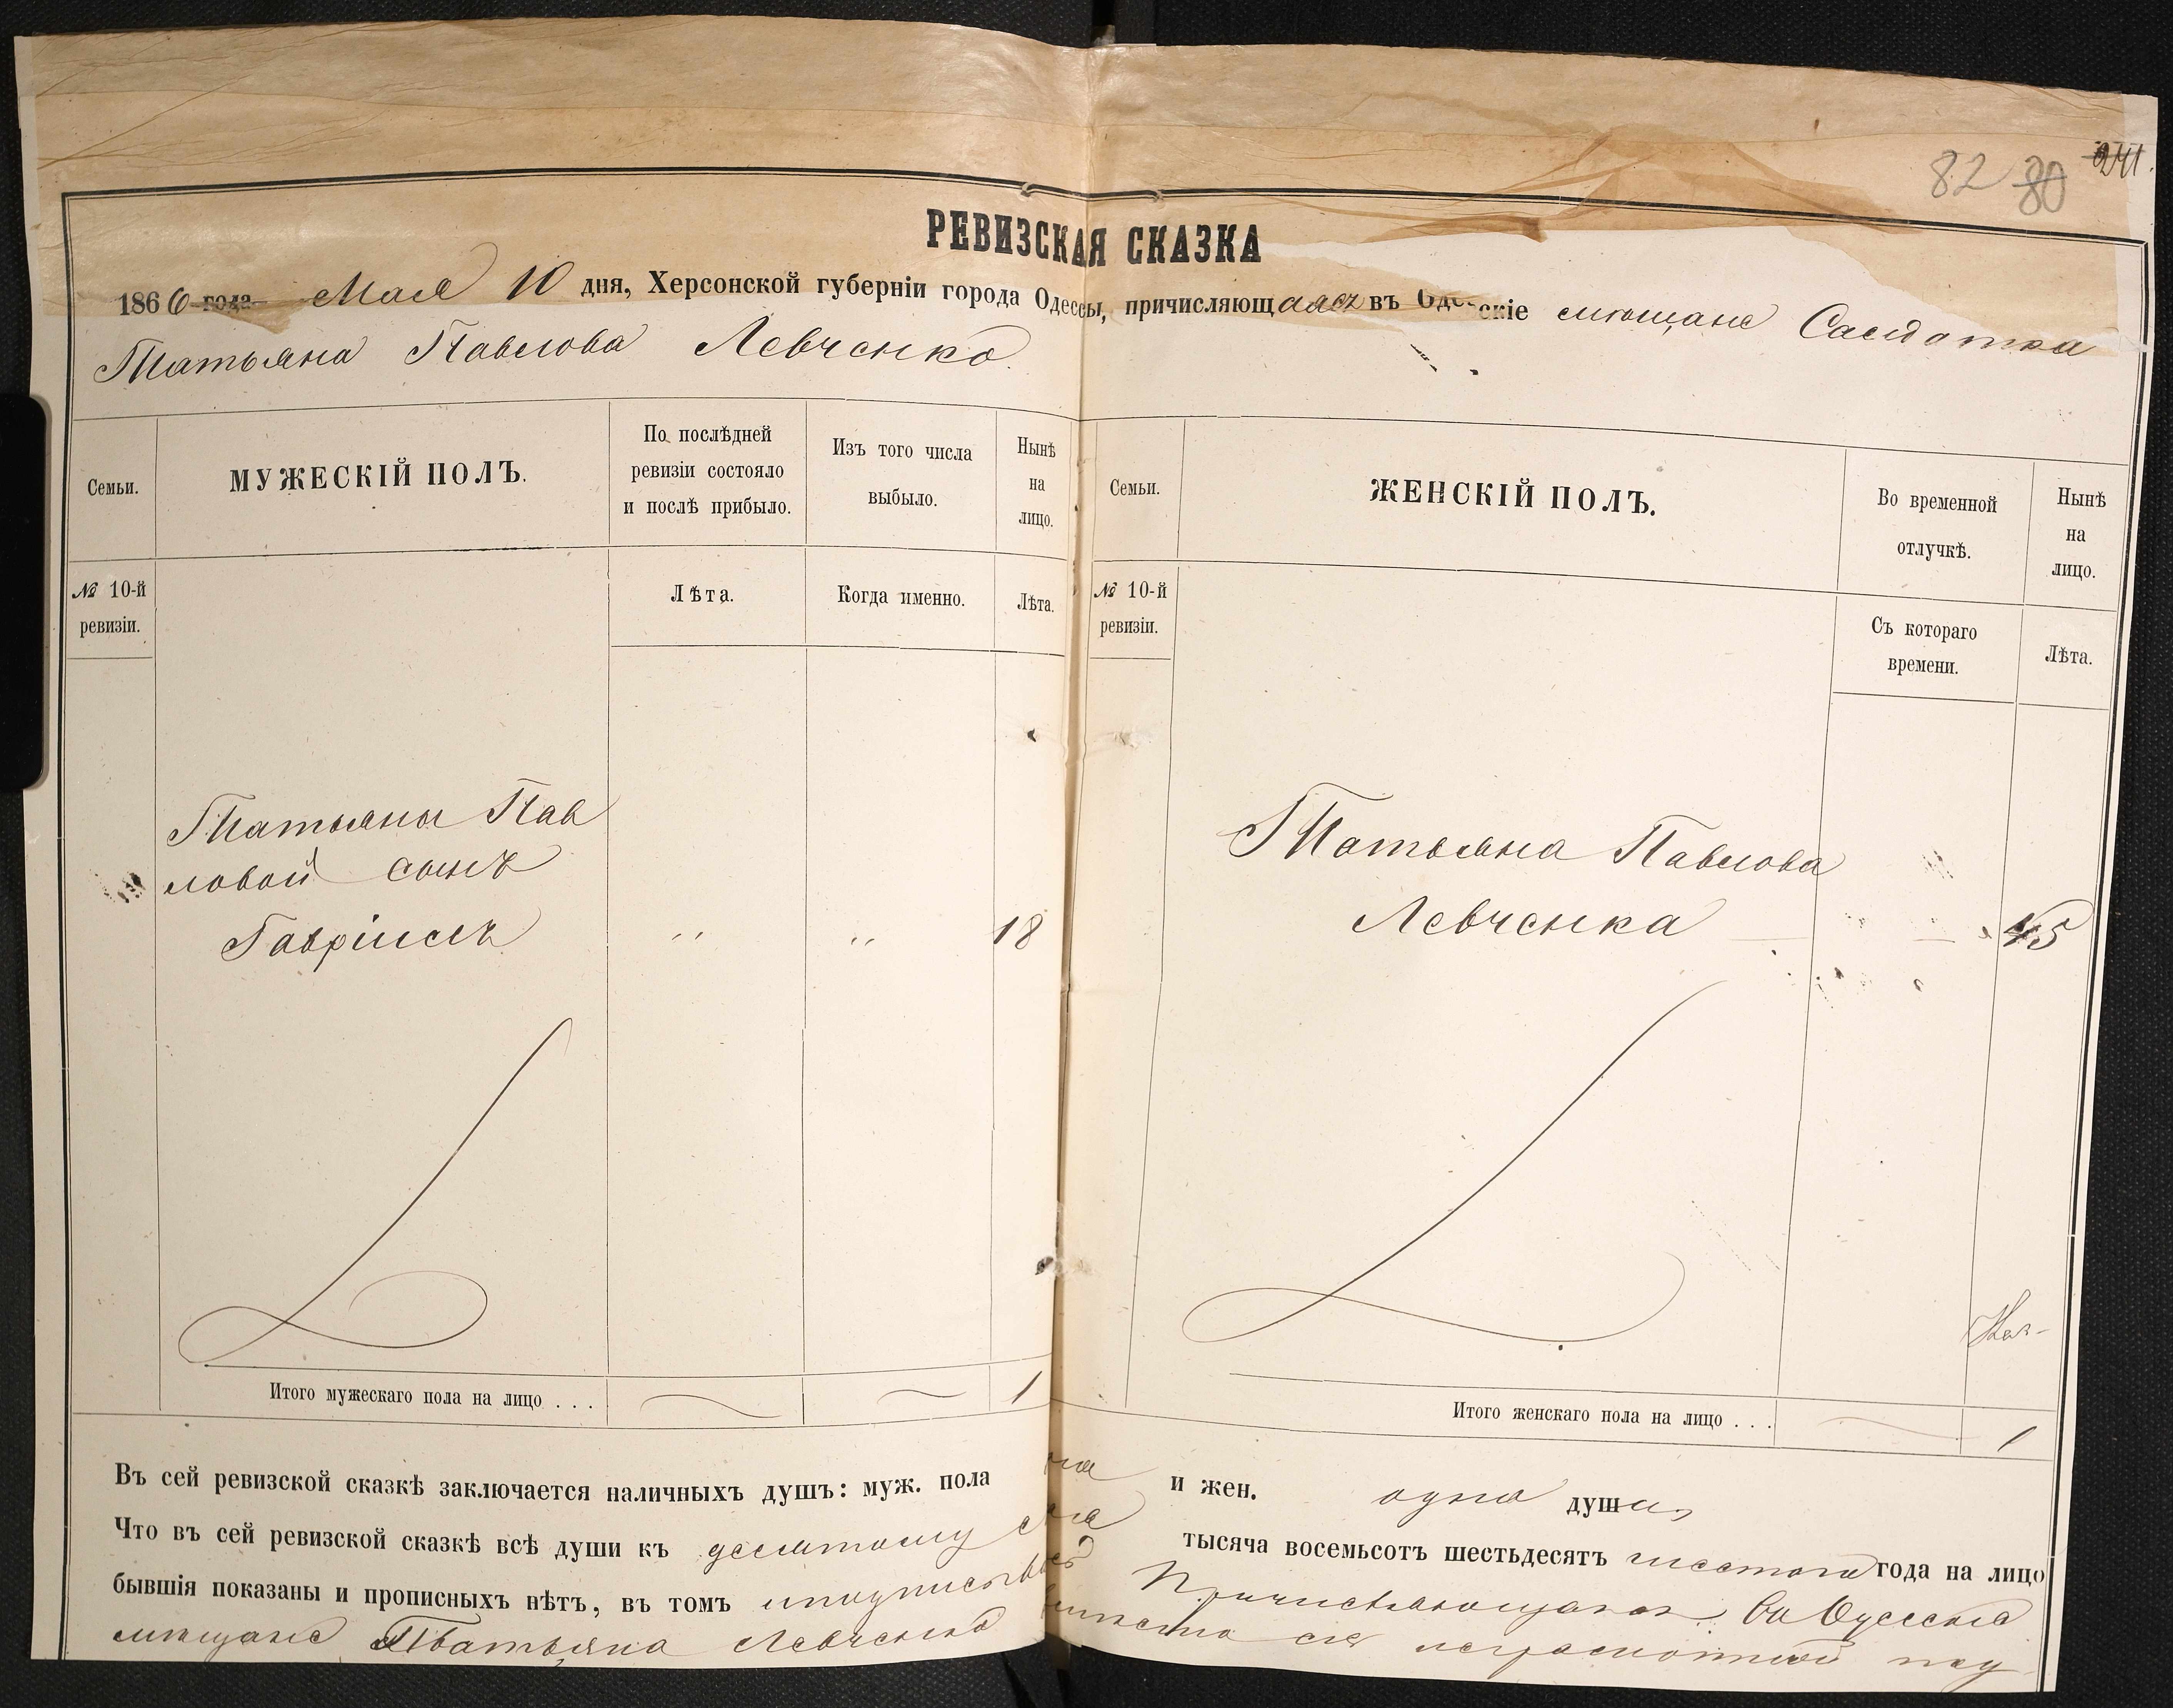 241.
82 80
РЕВИЗСКАЯ СКАЗКА
1866 года Мая 10 дня, Херсонской губерніи города Одессы, причисляющаяся въ Одескіе мѣщане Салдатка
Татьяна Павлова Левченко.
Семьи.
МУЖЕСКІЙ ПОЛЪ.
По послѣдней
ревизіи состояло
и послѣ прибыло.
Изъ того числа
выбыло.
Нынѣ
на
лицо.
№ 10-й
ревизіи.
Лѣта.
Когда именно.
Лѣта.
Татьяны Пав
ловой сынъ
Гавріилъ " " 18
Итого мужескаго пола на лицо . . . 1
Семьи.
ЖЕНСКІЙ ПОЛЪ.
Во временной
отлучкѣ.
Нынѣ
на
лицо.
№ 10-й
ревизіи.
Съ котораго
времени.
Лѣта.
Татьяна Павлова
Левченка 45
Итого женскаго пола на лицо . . . 1
Въ сей ревизской сказкѣ заключается наличныхъ душъ: муж. пола и жен. одна душа
Что въ сей ревизской сказкѣ всѣ души къ десятому мая тысяча восемьсотъ шестьдесятъ шестого года на лицо
бывшія показаны и прописныхъ нѣтъ, въ томъ Причисляющаяся въ Одесскіе
мѣщане Татьяна Левченко неграмотной под